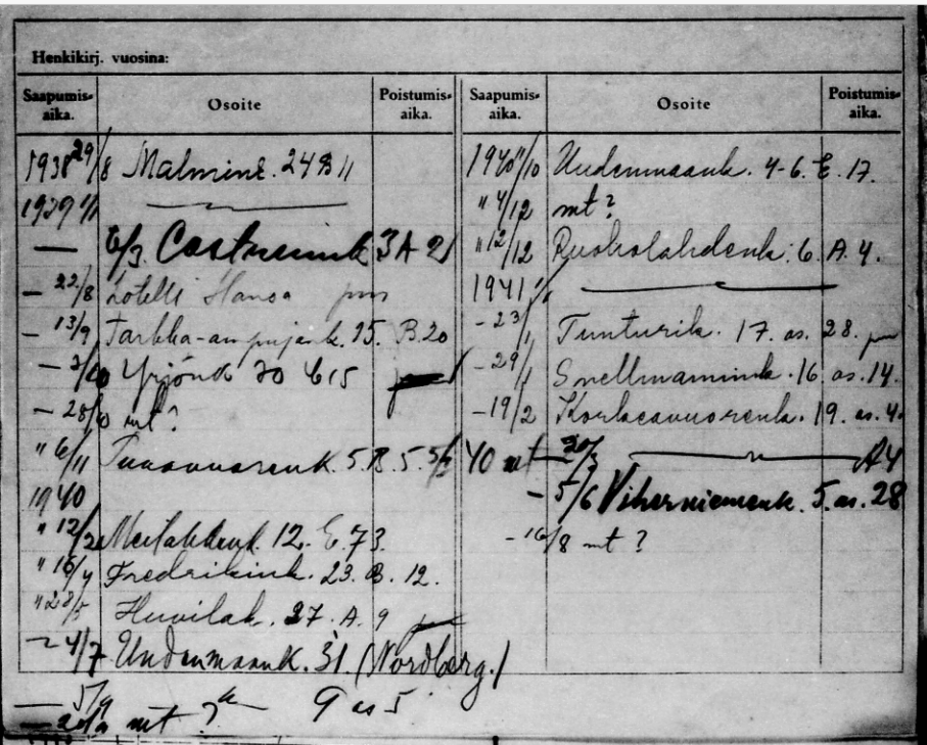 Henkikirj. vuosina:
Saapumis-aika. Osoite Poistumis-aika.
1938 29/8 Malmink. 24 B 11
1939 1/1 —
— 6/3 Castrenink 3 A 21
— 22/8 hotelli Hansa
— 13/9 Tarkka-ampujank. 15. B. 20
— 2/10 Yrjönk 30 C 15
— 28/10 mt?
" 6/11 5. B. 5.
1940
" 12/2 Meilahdenk. 12. E. 73.
" 16/4 Fredrikink. 23. B. 12.
" 28/5 Huvilak. 27. A. 9
— 4/7 Uudenmaank. 31 (Nordberg.)
— 5/9 9 as 5
— mt?
Saapumis-aika. Osoite Poistumis-aika.
1940 11/10 Uudenmaank. 4-6. E. 17.
" 4/12 mt?
" 12/12 Ruoholahdenk. 6. A. 4.
1941 1/1 —
— 23/1 Tunturik. 17. as. 28.
— 29/1 Snellmanink. 16. as. 14.
— 19/2 Korkeavuorenk. 19. as. 4.
40 mt — 20/3 — A 4
— 5/6 Viherniemenk. 5. as. 28
— 16/8 mt?